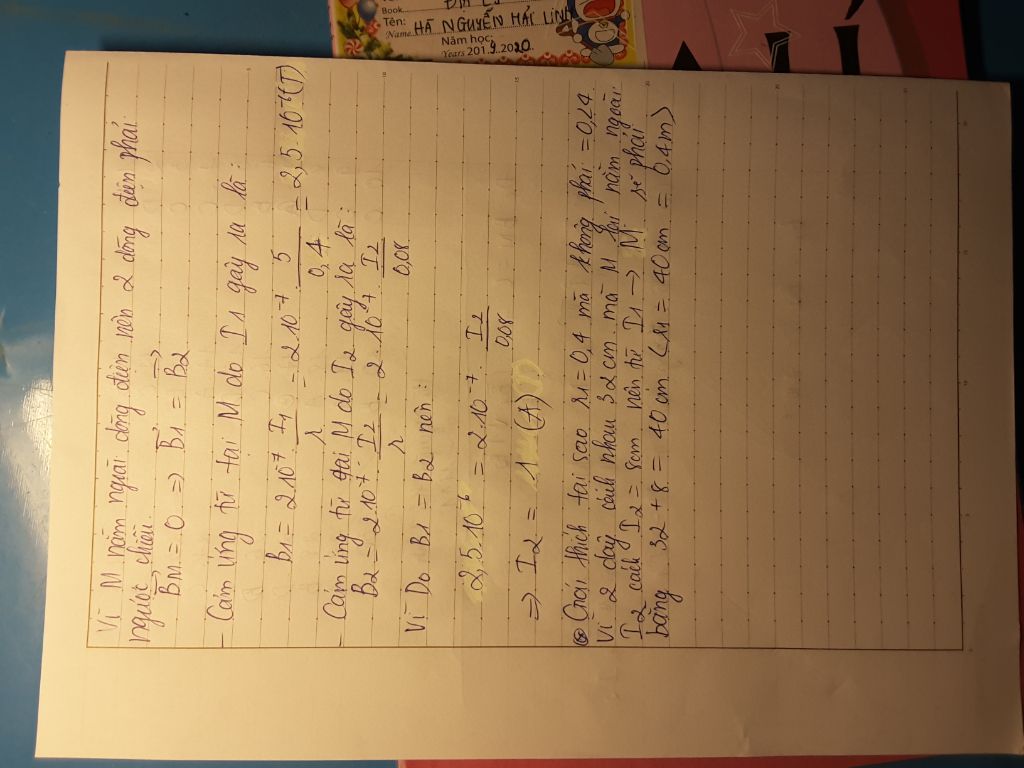 Book ĐỊA LÝ
Tên:
Name HÀ NGUYỄN HẢI LINH
Năm học:
Years 2019.2020.
Vì M nằm ngoài dòng điện nên 2 dòng điện phải
ngược chiều.
BM = 0 => B1 = B2
- Cảm ứng từ tại M do I1 gây ra là:
B1 = 2 10⁻⁷. I1/r = 2 10⁻⁷ 5/0,4 = 2,5.10⁻⁶(T)
- Cảm ứng từ tại M do I2 gây ra là:
B2 = 2 10⁻⁷. I2/r = 2.10⁻⁷. I2/0,08
Vì Do B1 = B2 nên:
2,5.10⁻⁶ = 2.10⁻⁷. I2/0,08
=> I2 = 1 (A)
Giải thích tại sao r1 = 0,4 mà không phải = 0,24
Vì 2 dây cách nhau 32 cm mà M lại nằm ngoài
I2 cách I2 = 8cm nên từ I1 → M sẽ phải
bằng 32 + 8 = 40 cm (r1 = 40 cm = 0,4m)